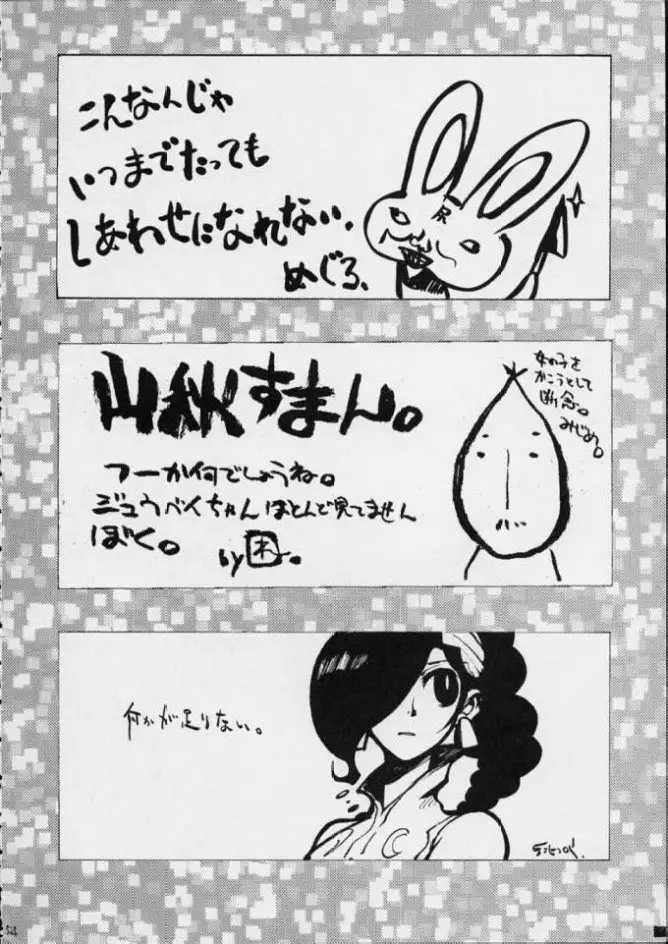 こんなんじゃ
いつまでたっても
しあわせになれない、
めじろ、
尿
山秋すまん。
つーか何でしょうね。
ジュウベイちゃんほとんど見てません
ぼく。
by困。
女の子を
かこうとして
断念。
みじめ。
何かが足りない。
54